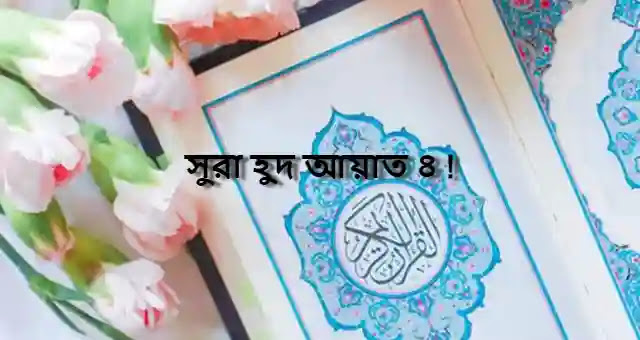 সুরা হুদ আয়াত ৪ !
القرآن الكريم